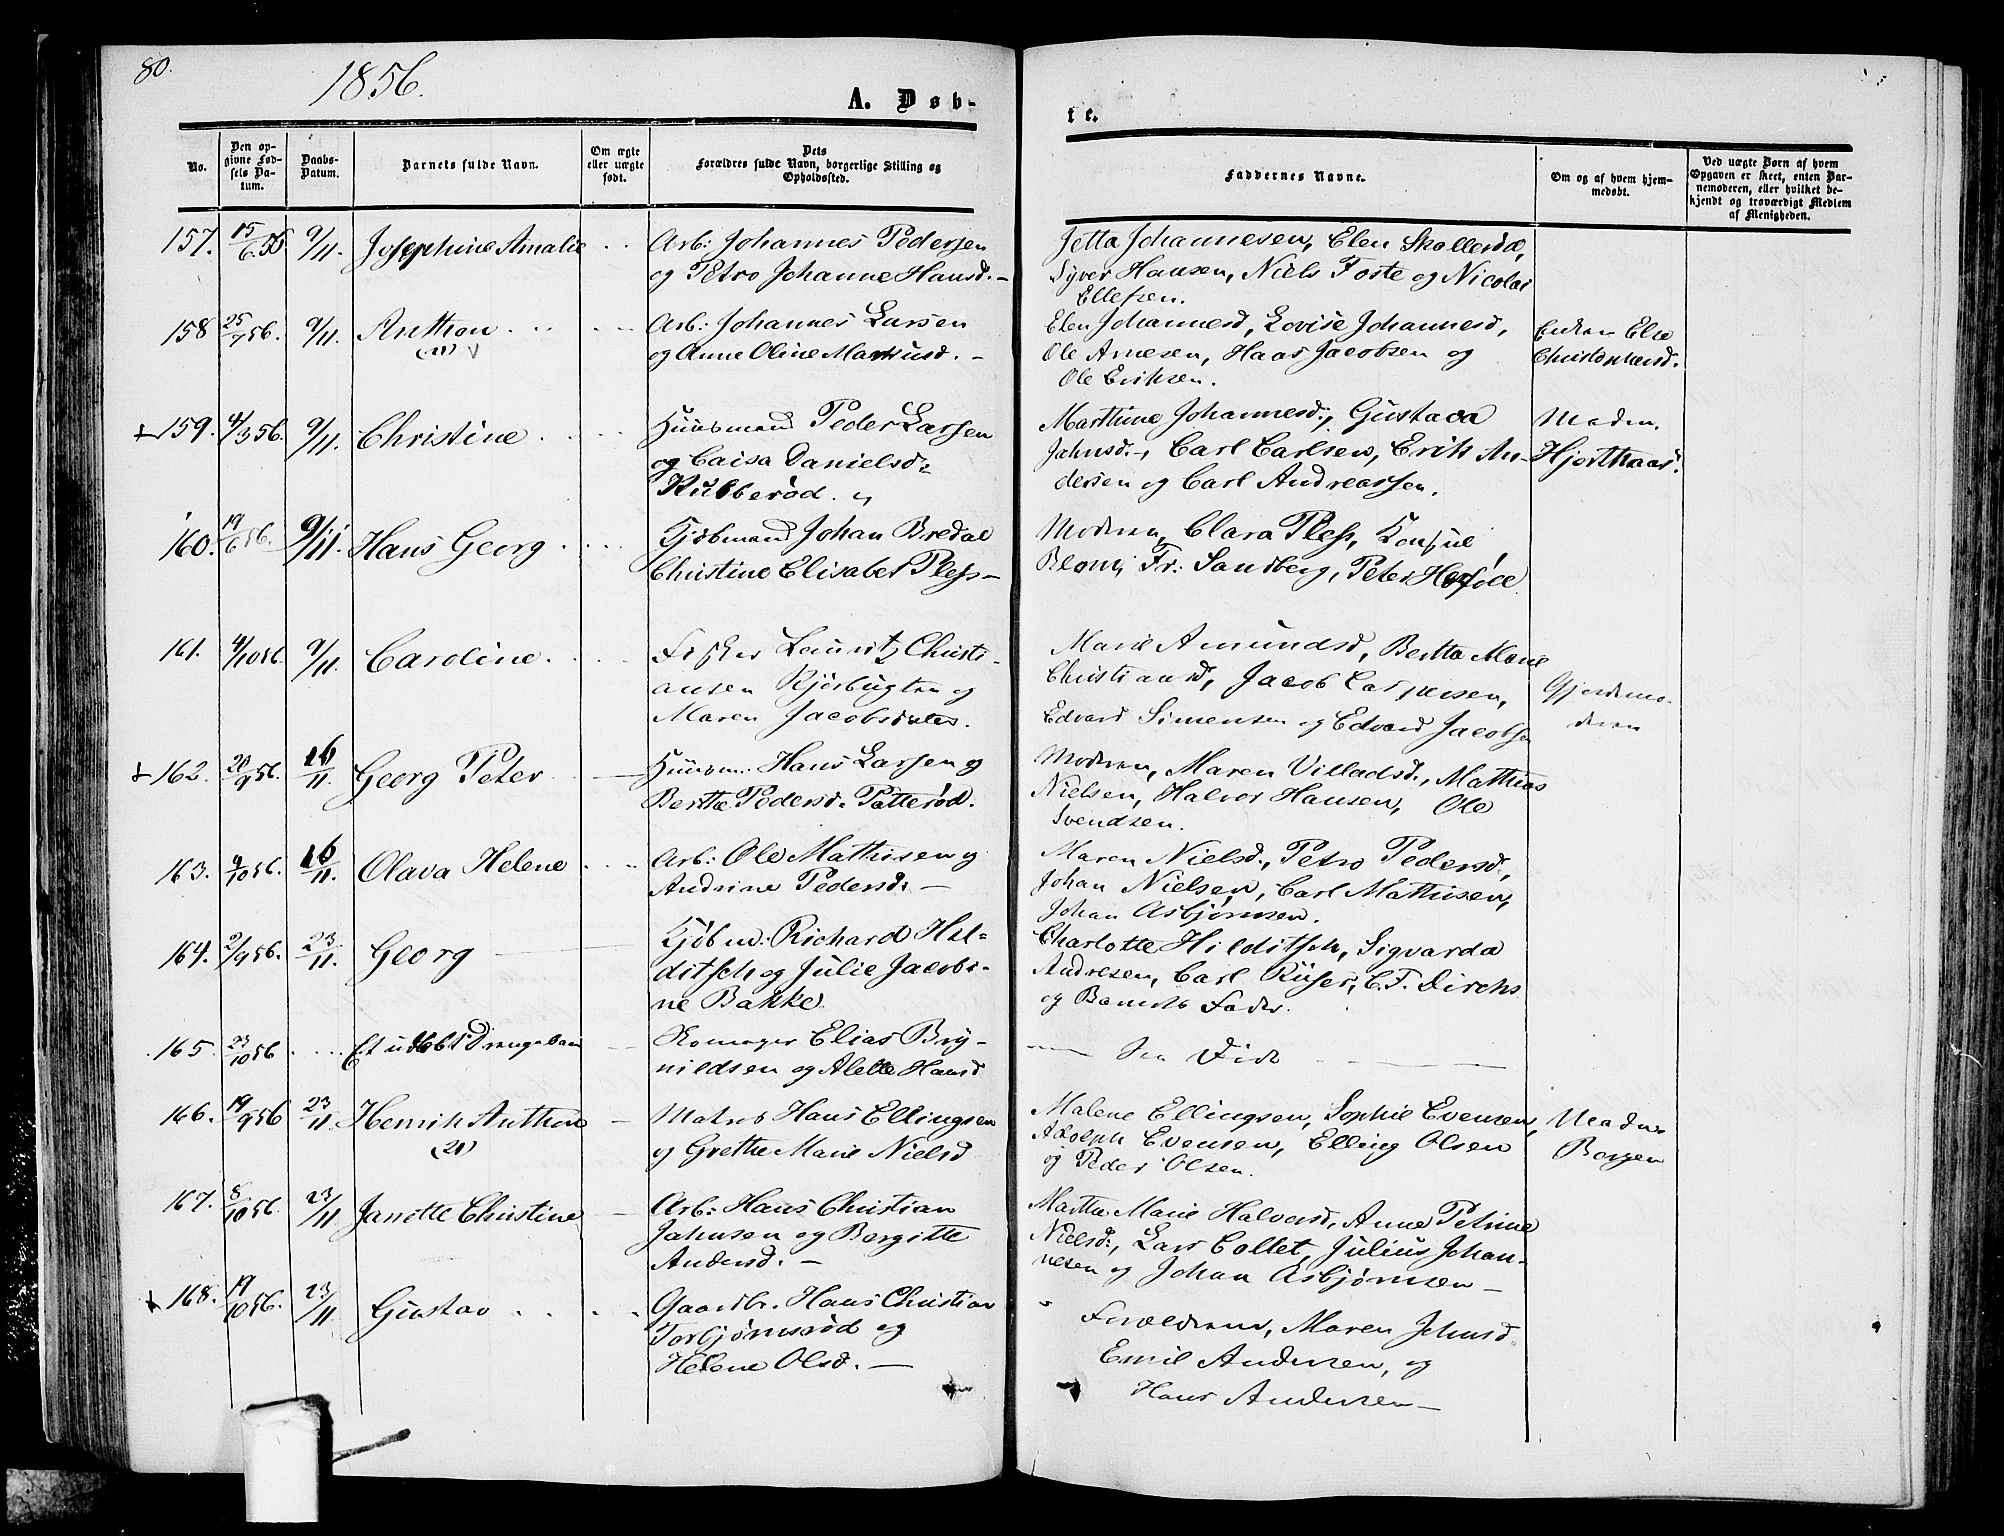 80.
1856.
A. Døb-
te.
No.
Den op-
givne Fød-
sels Da-
tum.
Daabs-
Datum.
Barnets fulde Navn.
Om ægte
eller uægte
født.
Dets
Forældres fulde Navn, borgerlige Stilling og
Opholdssted.
Faddernes Navne.
Om og af hvem hjem-
medøbt.
Ved uægte Børn af hvem
Opgaven er skeet, enten Bar-
nemoderen, eller hvilket be-
kjendt og troværdigt Medlem
af Menigheden.
157. 15/6 56 9/11 Josephine Amalie
Arb: Johannes Pedersen
og Petro Johanne Hansd.
Jetta Johannesen, Elen
Syver Hansen, Niels Foste og Nicolai
Ellefsen.
158 25/7 56. 9/11. Anthon
Arb: Johannes Larsen
og Anne Oline Markusd.
Elen Johannesd, Lovise Johannesd,
Ole Arnesen, Haas Jacobsen og
Ole Eriksen.
Enken Else
159. 4/3 56. 9/11. Christine
Huusmand Peder Larsen
og Caisa Danielsd:
Kubberød.
Marthine Johannesd:, Gustava
Jahnsd., Carl Carlsen, Erik An-
dersen og Carl Andreassen.
Maden.
160. 19/6 56. 9/11. Hans Georg
Kjøbmand Johan Bredal
Christine Elisabet Pless
Moderen, Clara Pless, Konsul
Blom, Fr: Sandberg, Peter
161. 4/10 56. 9/11. Caroline
Fisker Lauritz Christi-
ansen Kjørbugten og
Maren Jacobsdatter.
Marie Amundsd, Bertha Marie
Christiansd, Jacob Caspersen,
Edvard Simensen og Edvard Jacobsen
Gjordemo-
deren
162. 20/9 56. 16/11. Georg Peter
Huusm. Hans Larsen og
Berthe Pedersd. Patterød.
Moderen, Maren Villadsd., Mathias
Nielsen, Halvor Hansen, Ole
Svendsen.
163. 9/10 56. 16/11. Olava Helene
Arb: Ole Mathisen og
Andrine Pedersd:
Maren Nielsd., Petro Pedersd,
Johan Nielsen, Carl Mathisen,
Johan Asbjørnsen.
164. 2/9 56. 23/11. Georg
Kjøbm: Richard Hil-
ditsch og Julie Jacobi-
ne Bakke.
Charlotte Hilditsch, Sigvarda
Andresen, Carl Rüser, C. F. Dirchs
og Barnets Fader.
165. 23/10 56 Et udøbt Drengebarn
Skomager Elias Bry-
nildsen og Alette Hansd
166. 19/9 56 23/11. Henrik Anthon
Matros Hans Ellingsen
og Grethe Marie Nielsd
Malene Ellingsen, Sophie Evensen,
Adolph Evensen, Elling Olsen
og Peder Olsen.
Bergen
167. 8/10 56. 23/11 Janette Christine
Arb: Hans Christian
Jahnsen og Bergitte
Andersd.
Martha Marie Halversd, Anne Petrine
Nielsd:, Lars Collet, Julius Johan-
nesen og Johan Asbjørnsen
168. 19/10 56. 23/11 Gustav
Gaardbr. Hans Christian
Torbjørnsrød og
Helene Olsd.
Forældrene, Maren Johnsd.
Emil Andersen, og
Hans Andersen